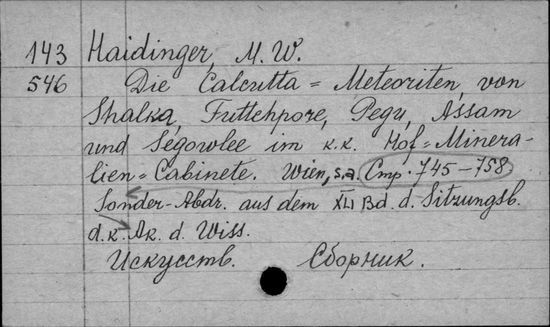 143 Haidinger, M. W.
546 Die Calcutta = Meteoriten, von
Shalka, Futtehpore, Pegu, Assam
und Segowlee im k.k. Hof = Minera-
lien = Cabinete. Wien, s.a. Стр. 745–758
Sonder-Abdr. aus dem XLI Bd. d. Sitzungsb.
d. k. Ak. d. Wiss.
Искусств. Сборник.